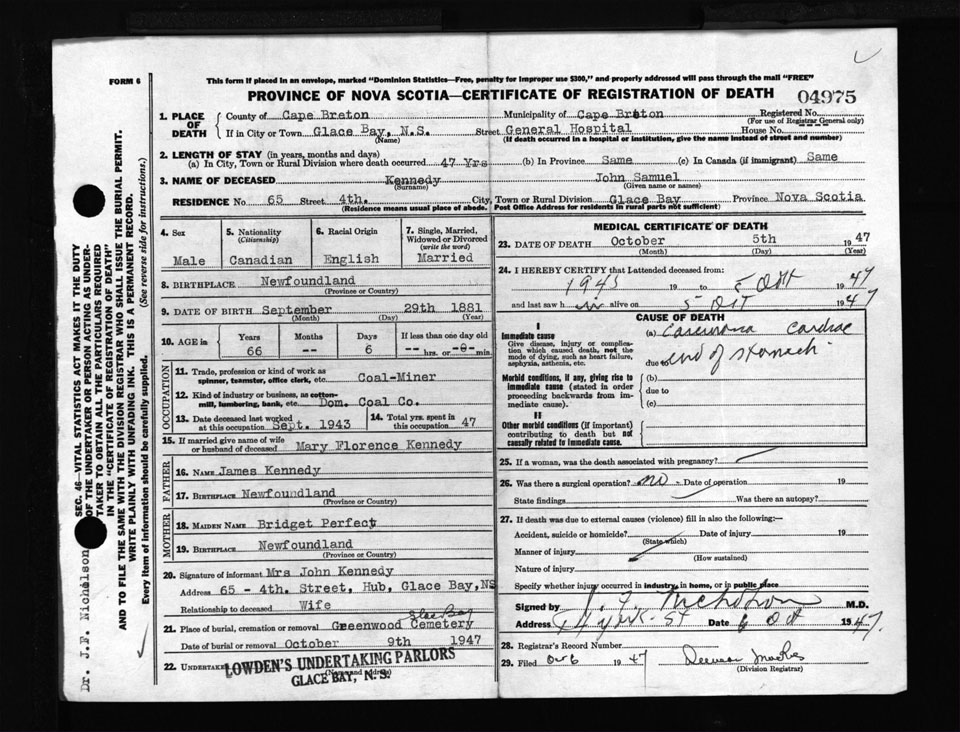 FORM 6
This form if placed in an envelope, marked "Dominion Statistics—Free, penalty for improper use $300," and properly addressed will pass through the mail "FREE"
PROVINCE OF NOVA SCOTIA—CERTIFICATE OF REGISTRATION OF DEATH
04975
1. PLACE OF DEATH
County of Cape Breton
Municipality of Cape Breton
Registered No.
(For use of Registrar General only)
If in City or Town Glace Bay, N.S. Street General Hospital House No. ---
(Name)
(If death occurred in a hospital or institution, give the name instead of street and number)
2. LENGTH OF STAY (in years, months and days)
(a) In City, Town or Rural Division where death occurred 47 Yrs (b) In Province Same (c) In Canada (if immigrant) Same
3. NAME OF DECEASED Kennedy John Samuel
(Surname) (Given name or names)
RESIDENCE No. 65 Street 4th. City, Town or Rural Division Glace Bay Province Nova Scotia
(Residence means usual place of abode. Post Office Address for residents in rural parts not sufficient)
4. Sex
Male
5. Nationality
(Citizenship)
Canadian
6. Racial Origin
English
7. Single, Married, Widowed or Divorced
(write the word)
Married
8. BIRTHPLACE Newfoundland
(Province or Country)
9. DATE OF BIRTH September 29th 1881
(Month) (Day) (Year)
10. AGE in
Years Months Days If less than one day old
66 -- 6 -- hrs. or -0- min.
OCCUPATION
11. Trade, profession or kind of work as spinner, teamster, office clerk, etc. Coal-Miner
12. Kind of industry or business, as cotton-mill, lumbering, bank, etc. Dom. Coal Co.
13. Date deceased last worked at this occupation Sept. 1943
14. Total yrs. spent in this occupation 47
15. If married give name of wife or husband of deceased Mary Florence Kennedy
FATHER
16. NAME James Kennedy
17. BIRTHPLACE Newfoundland
(Province or Country)
MOTHER
18. MAIDEN NAME Bridget Perfect
19. BIRTHPLACE Newfoundland
(Province or Country)
20. Signature of informant Mrs John Kennedy
Address 65 - 4th. Street, Hub, Glace Bay, NS
Relationship to deceased Wife
Glace Bay
21. Place of burial, cremation or removal Greenwood Cemetery
Date of burial or removal October 9th 1947
22. UNDERTAKER LOWDEN'S UNDERTAKING PARLORS
(Name and address)
GLACE BAY, N. S.
MEDICAL CERTIFICATE OF DEATH
23. DATE OF DEATH October 5th 1947
(Month) (Day) (Year)
24. I HEREBY CERTIFY that I attended deceased from:
1945 19 to 5 Oct 1947
and last saw h im alive on 5 Oct 1947
CAUSE OF DEATH
I
Immediate cause
Give disease, injury or complication which caused death, not the mode of dying, such as heart failure, asphyxia, asthenia, etc.
(a) Carcinoma Cardiac
due to end of stomach
Morbid conditions, if any, giving rise to immediate cause (stated in order proceeding backwards from immediate cause).
(b)
due to
(c)
II
Other morbid conditions (if important) contributing to death but not causally related to immediate cause.
25. If a woman, was the death associated with pregnancy?
26. Was there a surgical operation? no Date of operation 19
State findings Was there an autopsy?
27. If death was due to external causes (violence) fill in also the following:—
Accident, suicide or homicide? Date of injury 19
(State which)
Manner of injury
(How sustained)
Nature of injury
Specify whether injury occurred in industry, in home, or in public place
Signed by J. F. Nicholson M.D.
Address York St Date 6 Oct 1947.
28. Registrar's Record Number
29. Filed Oct 6 1947
(Division Registrar)
SEC. 46—VITAL STATISTICS ACT MAKES IT THE DUTY
OF THE UNDERTAKER OR PERSON ACTING AS UNDER-
TAKER TO OBTAIN ALL THE PARTICULARS REQUIRED
IN THE "CERTIFICATE OF REGISTRATION OF DEATH"
AND TO FILE THE SAME WITH THE DIVISION REGISTRAR WHO SHALL ISSUE THE BURIAL PERMIT.
WRITE PLAINLY WITH UNFADING INK. THIS IS A PERMANENT RECORD.
Every item of information should be carefully supplied. (See reverse side for instructions.)
Dr. J.F. Nicholson